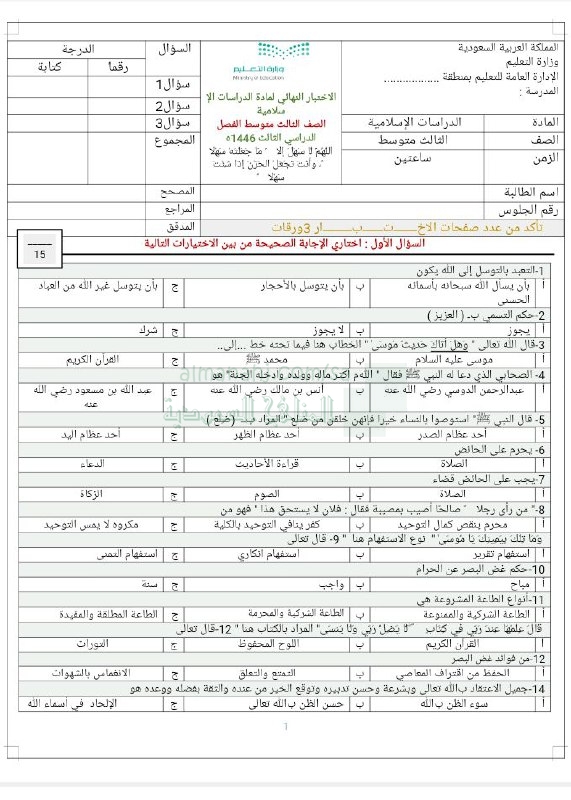 المملكة العربية السعودية
وزارة التعليم
الإدارة العامة للتعليم بمنطقة ..................
المدرسة :
وزارة التعليم
Ministry of Education
الاختبار النهائي لمادة الدراسات الإ
سلامية
الصف الثالث متوسط الفصل
الدراسي الثالث 1446ه
اللهم لا سهل إلا ما جعلته سهلا
وأنت تجعل الحزن إذا شئت
سهلا
السؤال الدرجة
رقما كتابة
سؤال1
سؤال2
سؤال3
المجموع
المصحح
المراجع
المدقق
المادة الدراسات الإسلامية
الصف الثالث متوسط
الزمن ساعتين
اسم الطالبة
رقم الجلوس
تأكد من عدد صفحات الاخـــتـــبـــار 3ورقات
السؤال الأول : اختاري الإجابة الصحيحة من بين الاختيارات التالية
15
1-التعبد بالتوسل إلى الله يكون
أ بأن يسأل الله سبحانه بأسمائه الحسنى ب بأن يتوسل بالأحجار ج بأن يتوسل غير الله من العباد
2-حكم التسمي بـ ( العزيز )
أ يجوز ب لا يجوز ج شرك
3-قال الله تعالى " وهل أتاك حديث موسى " الخطاب هنا فيما تحته خط ...إلى..
أ موسى عليه السلام ب محمد ﷺ ج القرآن الكريم
4- الصحابي الذي دعا له النبي ﷺ فقال " اللهم أكثر ماله وولده وأدخله الجنة" هو
أ عبدالرحمن الدوسي رضي الله عنه ب أنس بن مالك رضي الله عنه ج عبد الله بن مسعود رضي الله عنه
5- قال النبي ﷺ" استوصوا بالنساء خيرا فإنهن خلقن من ضلع " المراد بـ (ضلع )
أ أحد عظام الصدر ب أحد عظام الظهر ج أحد عظام اليد
6- يحرم على الحائض
أ الصلاة ب قراءة الأحاديث ج الدعاء
7-يجب على الحائض قضاء
أ الصلاة ب الصوم ج الزكاة
8-" من رأى رجلا " صالحا أصيب بمصيبة فقال : فلان لا يستحق هذا " فهو من
أ محرم ينقص كمال التوحيد ب كفر ينافي التوحيد بالكلية ج مكروه لا يمس التوحيد
وما تلك بيمينك يا موسى" " نوع الاستفهام هنا " 9- قال تعالى
أ استفهام تقرير ب استفهام انكاري ج استفهام التمني
10-حكم غض البصر عن الحرام
أ مباح ب واجب ج سنة
11-أنواع الطاعة المشروعة هي
أ الطاعة الشركية والممنوعة ب الطاعة الشركية والمحرمة ج الطاعة المطلقة والمقيدة
قال علمها عند ربي في كتاب " لا يضل ربي ولا ينسى" المراد بالكتاب هنا " 12-قال تعالى
أ القرآن الكريم ب اللوح المحفوظ ج التورات
12-من فوائد غض البصر
أ الحفظ من اقتراف المعاصي ب التمتع والتعلق ج الانغماس بالشهوات
14-جميل الاعتقاد بالله تعالى وبشرعة وحسن تدبيره وتوقع الخير من عنده والثقة بفضله ووعده هو
أ سوء الظن بالله ب حسن الظن بالله تعالى ج الإلحاد في أسماء الله
1